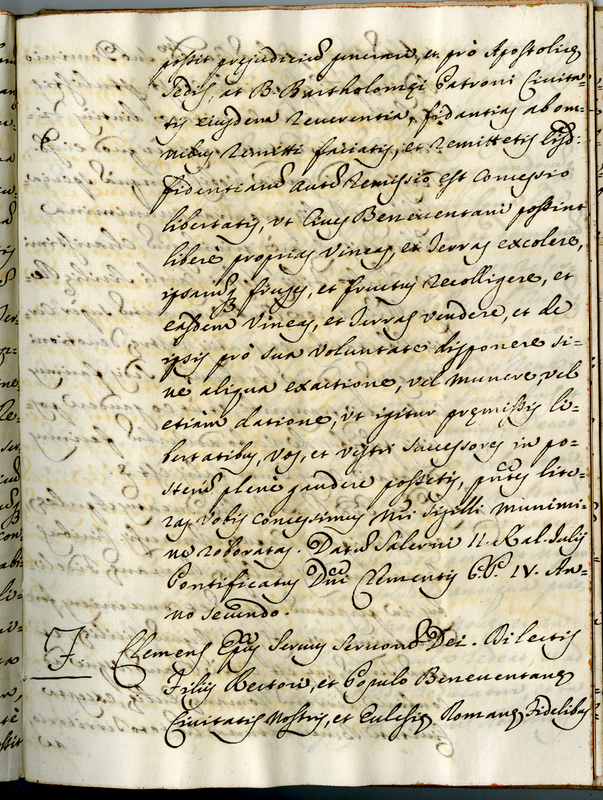 possit prejudicium generari, et pro Apostolicę
Sedis, at B. Bartholomęi Patroni Civita-
tis eiusdem reverentia, fidantias ab om-
nibus remitti faciatis, et remittetis
fidentiarum autem remissio est concessio
libertatis, vt Cives Beneventani possint
liberè proprias vineas, et Terras excolere,
ipsarumq fruges, et fructus recolligere, et
easdem vineas, et Terras vendere, et de
ipsis prò sua voluntate disponere si-
nè aliqua exactione, vel munere, vel
etiam datione, vt igitur pręmissis li-
bertatibus, vos, et vestri successores in po-
sterum plenè gaudere possetis, pntes lite-
ras vobis concessimus Nri sigilli munimi-
ne roboratas. Datum Salerni II. Kal. Julij
Pontificatus Dni Clementis P.P. IV. An-
no secundo.
F Clemens Epus servus servorum Dei. Dilectis
Filijs Rectori, et Populo Beneventanę
Civitatis Nostris, et Eclesię Romanę Fidelibus